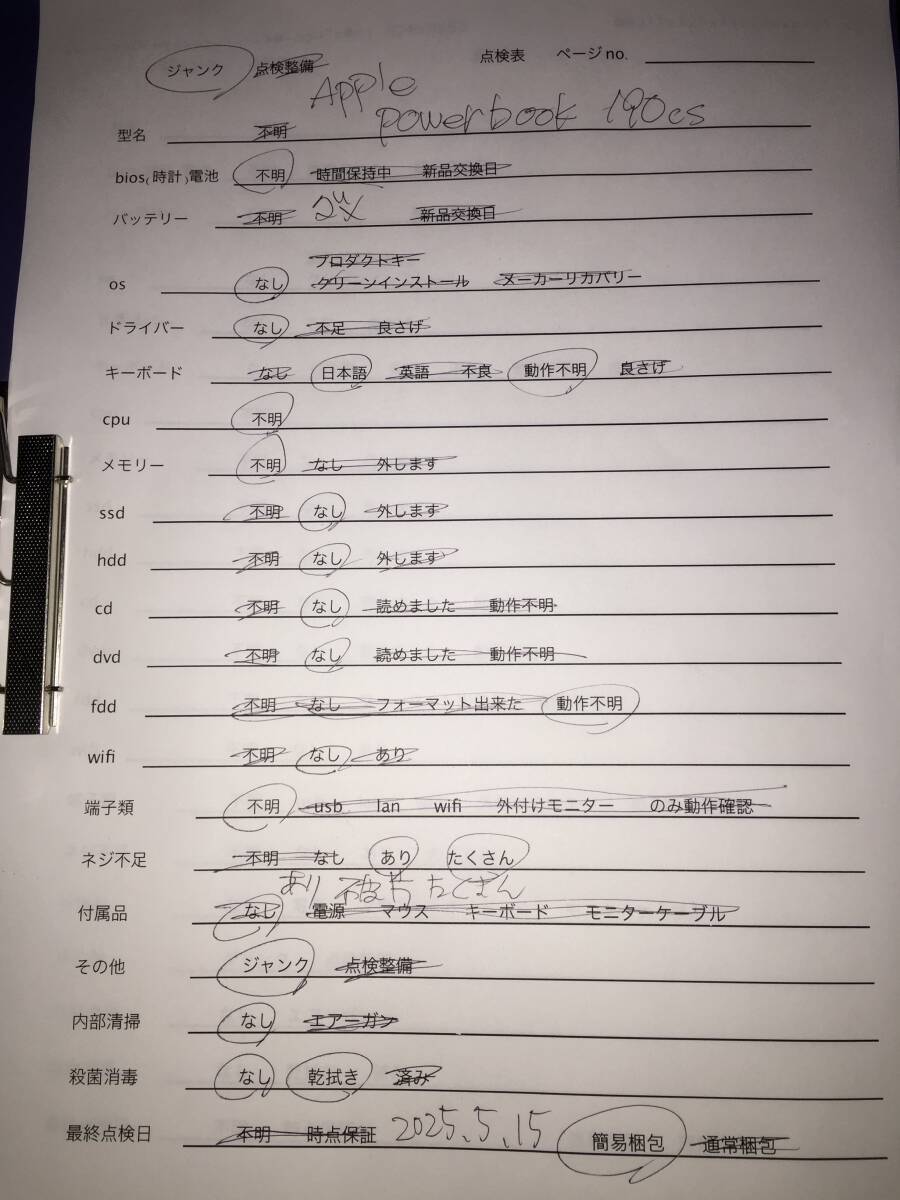 ジャンク 点検整備 点検表 ページno.
Apple
powerbook 190cs
型名 不明
bios(時計)電池 不明 時間保持中 新品交換日
バッテリー 不明 新品交換日
プロダクトキー
os なし クリーンインストール メーカーリカバリー
ドライバー なし 不足 良さげ
キーボード なし 日本語 英語 不良 動作不明 良さげ
cpu 不明
メモリー 不明 なし 外します
ssd 不明 なし 外します
hdd 不明 なし 外します
cd 不明 なし 読めました 動作不明
dvd 不明 なし 読めました 動作不明
fdd 不明 なし フォーマット出来た 動作不明
wifi 不明 なし あり
端子類 不明 usb lan wifi 外付けモニター のみ動作確認
ネジ不足 不明 なし あり たくさん
あり 破片 たくさん
付属品 なし 電源 マウス キーボード モニターケーブル
その他 ジャンク 点検整備
内部清掃 なし エアーガン
殺菌消毒 なし 乾拭き 済み
最終点検日 不明 時点保証 2025.5.15 簡易梱包 通常梱包